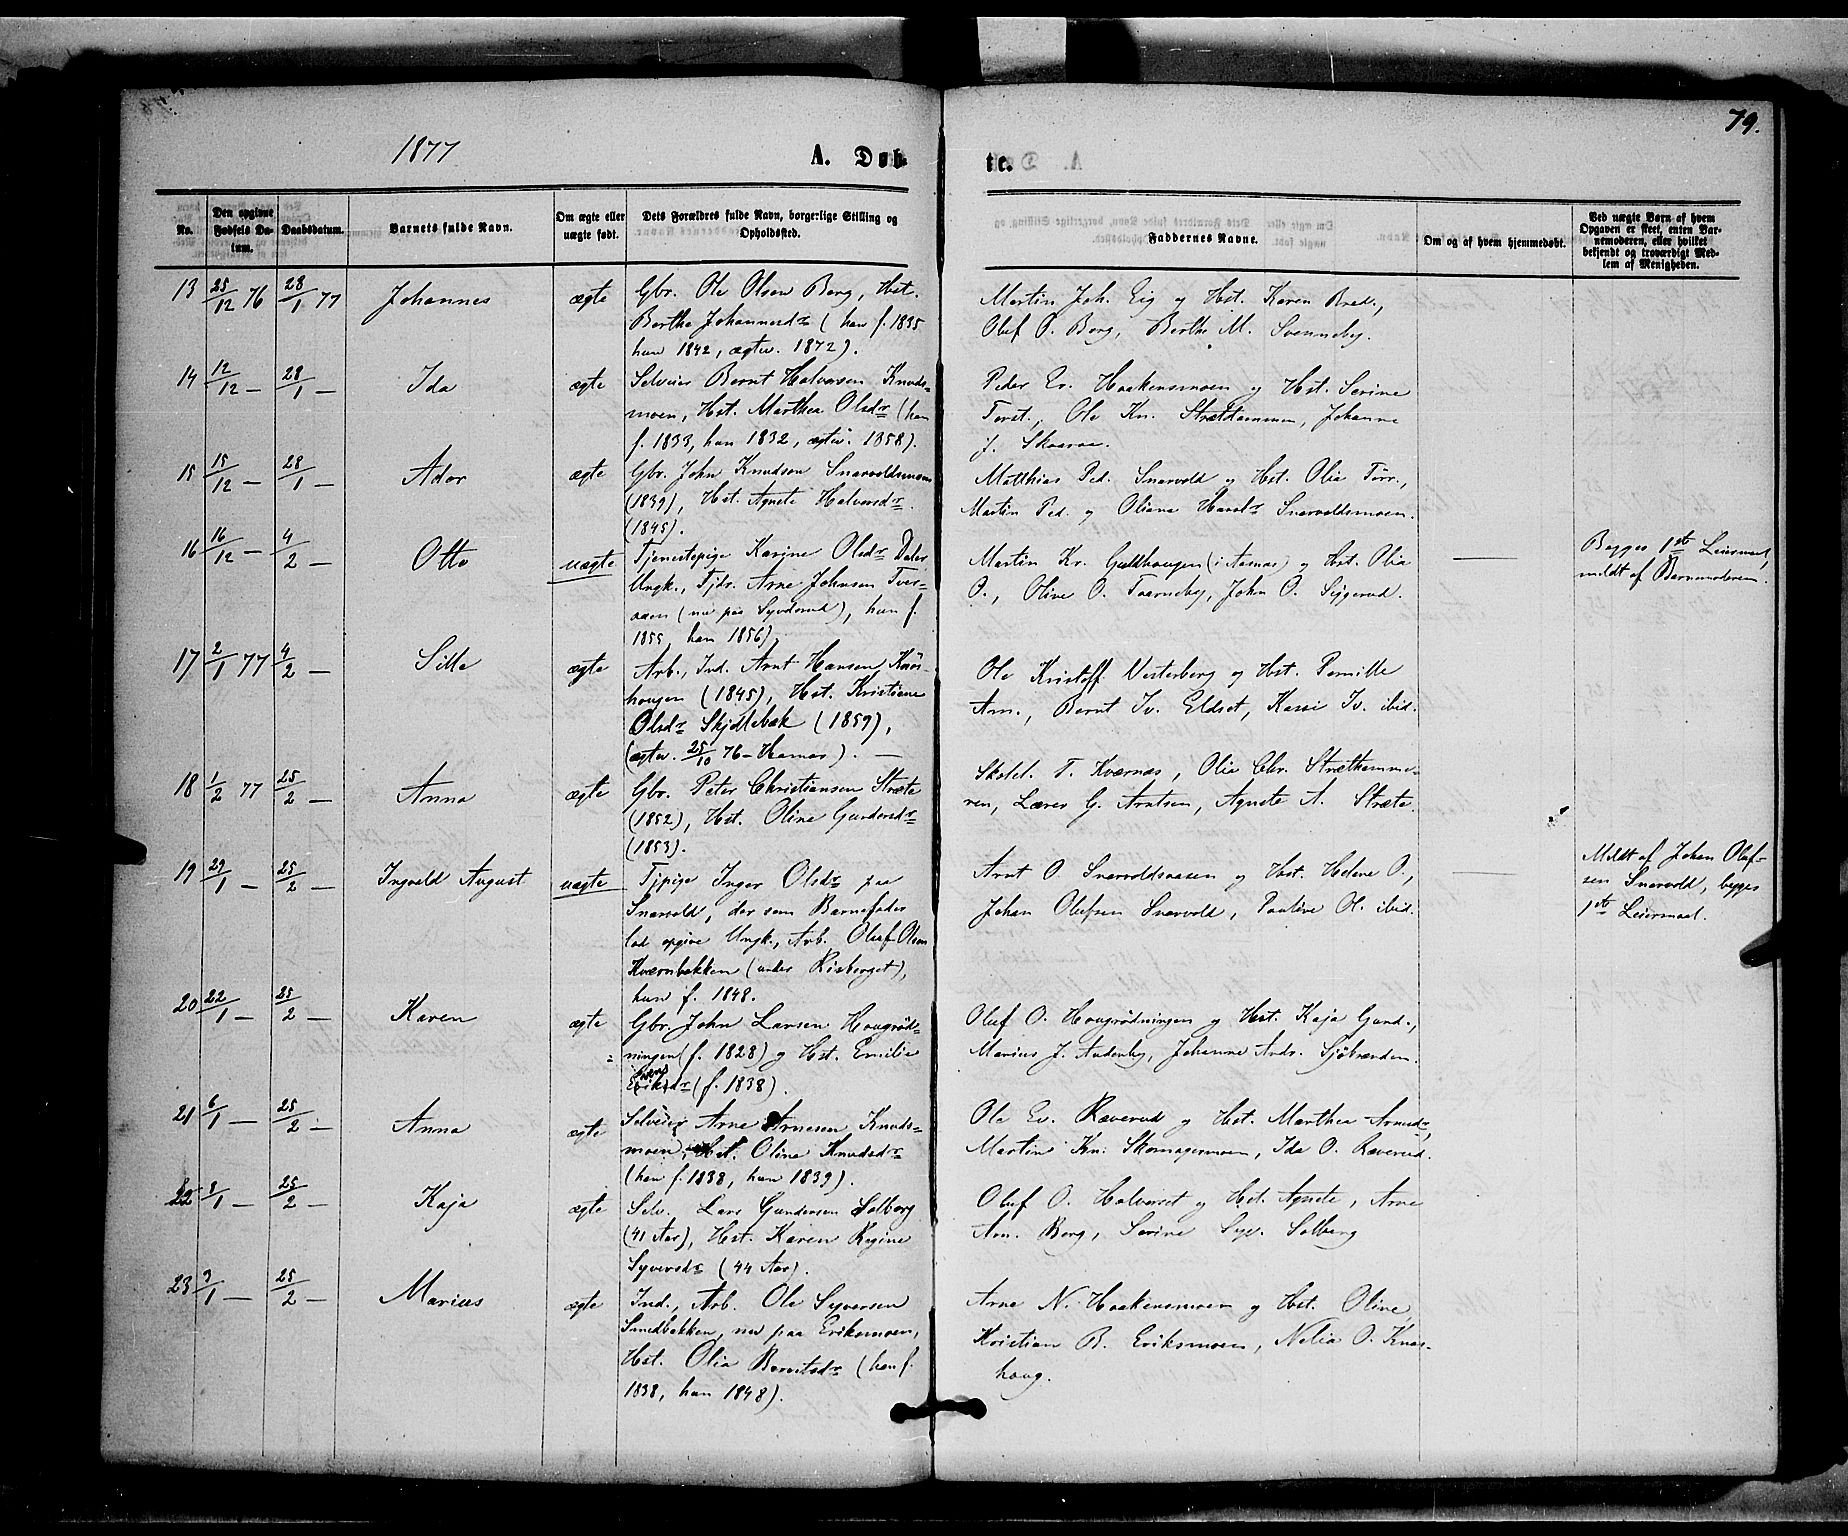 79.
1877
A. Døb-
te.
No.
Den opgivne Fødsels Datum.
Daabsdatum.
Barnets fulde Navn.
Om ægte eller uægte født.
Dets Forældres fulde Navn, borgerlige Stilling og Opholdssted.
Faddernes Navne.
Om og af hvem hjemmedøbt.
Ved uægte Børn af hvem Opgaven er skeet, enten Barnemoderen, eller hvilket bekjendt og troværdigt Medlem af Menigheden.
13 25/12 76 28/1 77 Johannes ægte Gbr. Ole Olsen Berg, Hst.
Berthe Johannesdr (han f. 1835
hun 1842, ægtev. 1872).
Martin Joh. Eig og Hst. Karen Bred.,
Oluf O. Berg, Berthe M. Svenneby.
14 12/12 – 28/1 – Ida ægte Selveier Bernt Halvorsen Knuds-
moen, Hst. Marthea Olsdr (han
f. 1833, hun 1832, ægtev. 1858).
Peder Ev. Haakensmoen og Hst. Serine
Torst., Ole Kn. Strætkammen, Johanne
J. Skaaraa.
15 15/12 – 28/1 – Ador ægte Gbr. John Knudsen Snarvoldsmoen
(1839), Hst. Agnete Halvorsdr.
(1845).
Matthias Ped. Snarvold og Hst. Olia Torr.,
Martin Ped. og Oliana Havoldr Snarvoldsmoen.
16 16/12 – 4/2 – Otto uægte Tjenestepige Karine Olsdr Daler,
Ungk., Tjbr. Arne Johnsen Tver-
aaen (nu paa Syvdsrud), hun f.
1855, han 1856).
Martin Kr. Guldhaugen (i Aasnas) og Hst. Olia
O., Olive O. Taarneby, John O. Siggerud. —
Begges 1ste Leiermaal,
meldt af Barnmoderen.
17 2/1 77 4/2 – Sille ægte Arb., Ind. Arnt Hansen Knøs-
haugen (1845), Hst. Kristiane
Olsdr Skjællebæk (1859),
(ægtev. 25/10 76 – Hamar). —
Ole Kristoff. Vesterberg og Hst. Pernille
Arn., Bernt Iv. Eldset, Kaisi Iv. ibid.
18 1/2 77 25/2 – Anna ægte Gbr. Peter Christiansen Stræte
(1852), Hst. Oline Gundersdr
(1853).
Skolel. T. Kværnæs, Olia Chr. Strætkamme-
ren, Lærer G. Arntsen, Agnete A. Stræte.
19 29/1 – 25/2 – Ingvald August uægte Tjpige Inger Olsdr paa
Snarvold, der som Barnefader
lod opgive Ungk., Arb. Oluf Olsen
Kværnbakken (under Risberget),
han f. 1848.
Arnt O. Snarvoldsaasen og Hst. Helene O.,
Johan Olufsen Snarvold, Pauline Ol. ibid. —
Meldt af Johan Oluf-
sen Snarvold, begges
1ste Leiermaal.
20 22/1 – 25/2 – Karen ægte Gbr. John Larsen Haugrød-
ningen (f. 1828) og Hst. Emilie
Eriksdr (f. 1838).
Oluf O. Haugrødningen og Hst. Kaja Gund.,
Marius J. Audenby, Johanne Andr. Sjøbrænden.
21 6/1 – 25/2 – Anna ægte Selveier Arne Arnesen Knuds-
moen, Hst. Oline Knudsdr
(han f. 1838, hun 1839).
Ole Ev. Ræverud og Hst. Marthea Arnesdr,
Martin Kn. Skomagermoen, Ida O. Ræverud.
22 8/1 – 25/2 – Kaja ægte Selv. Lars Gundersen Solberg
(41 Aar), Hst. Karen Regine
Syversdr (44 Aar).
Oluf O. Halvorset og Hst. Agnete, Arne
Arn. Berg, Serine Syv. Solberg
23 3/1 – 25/2 – Marius ægte Ind., Arb. Ole Syversen
Smedbakken, nu paa Eriksmoen,
Hst. Olia Berntsdr (han f.
1838, hun 1848).
Arne N. Haakensmoen og Hst. Oline,
Kristian B. Eriksmoen, Nelia O. Knøs-
haug.